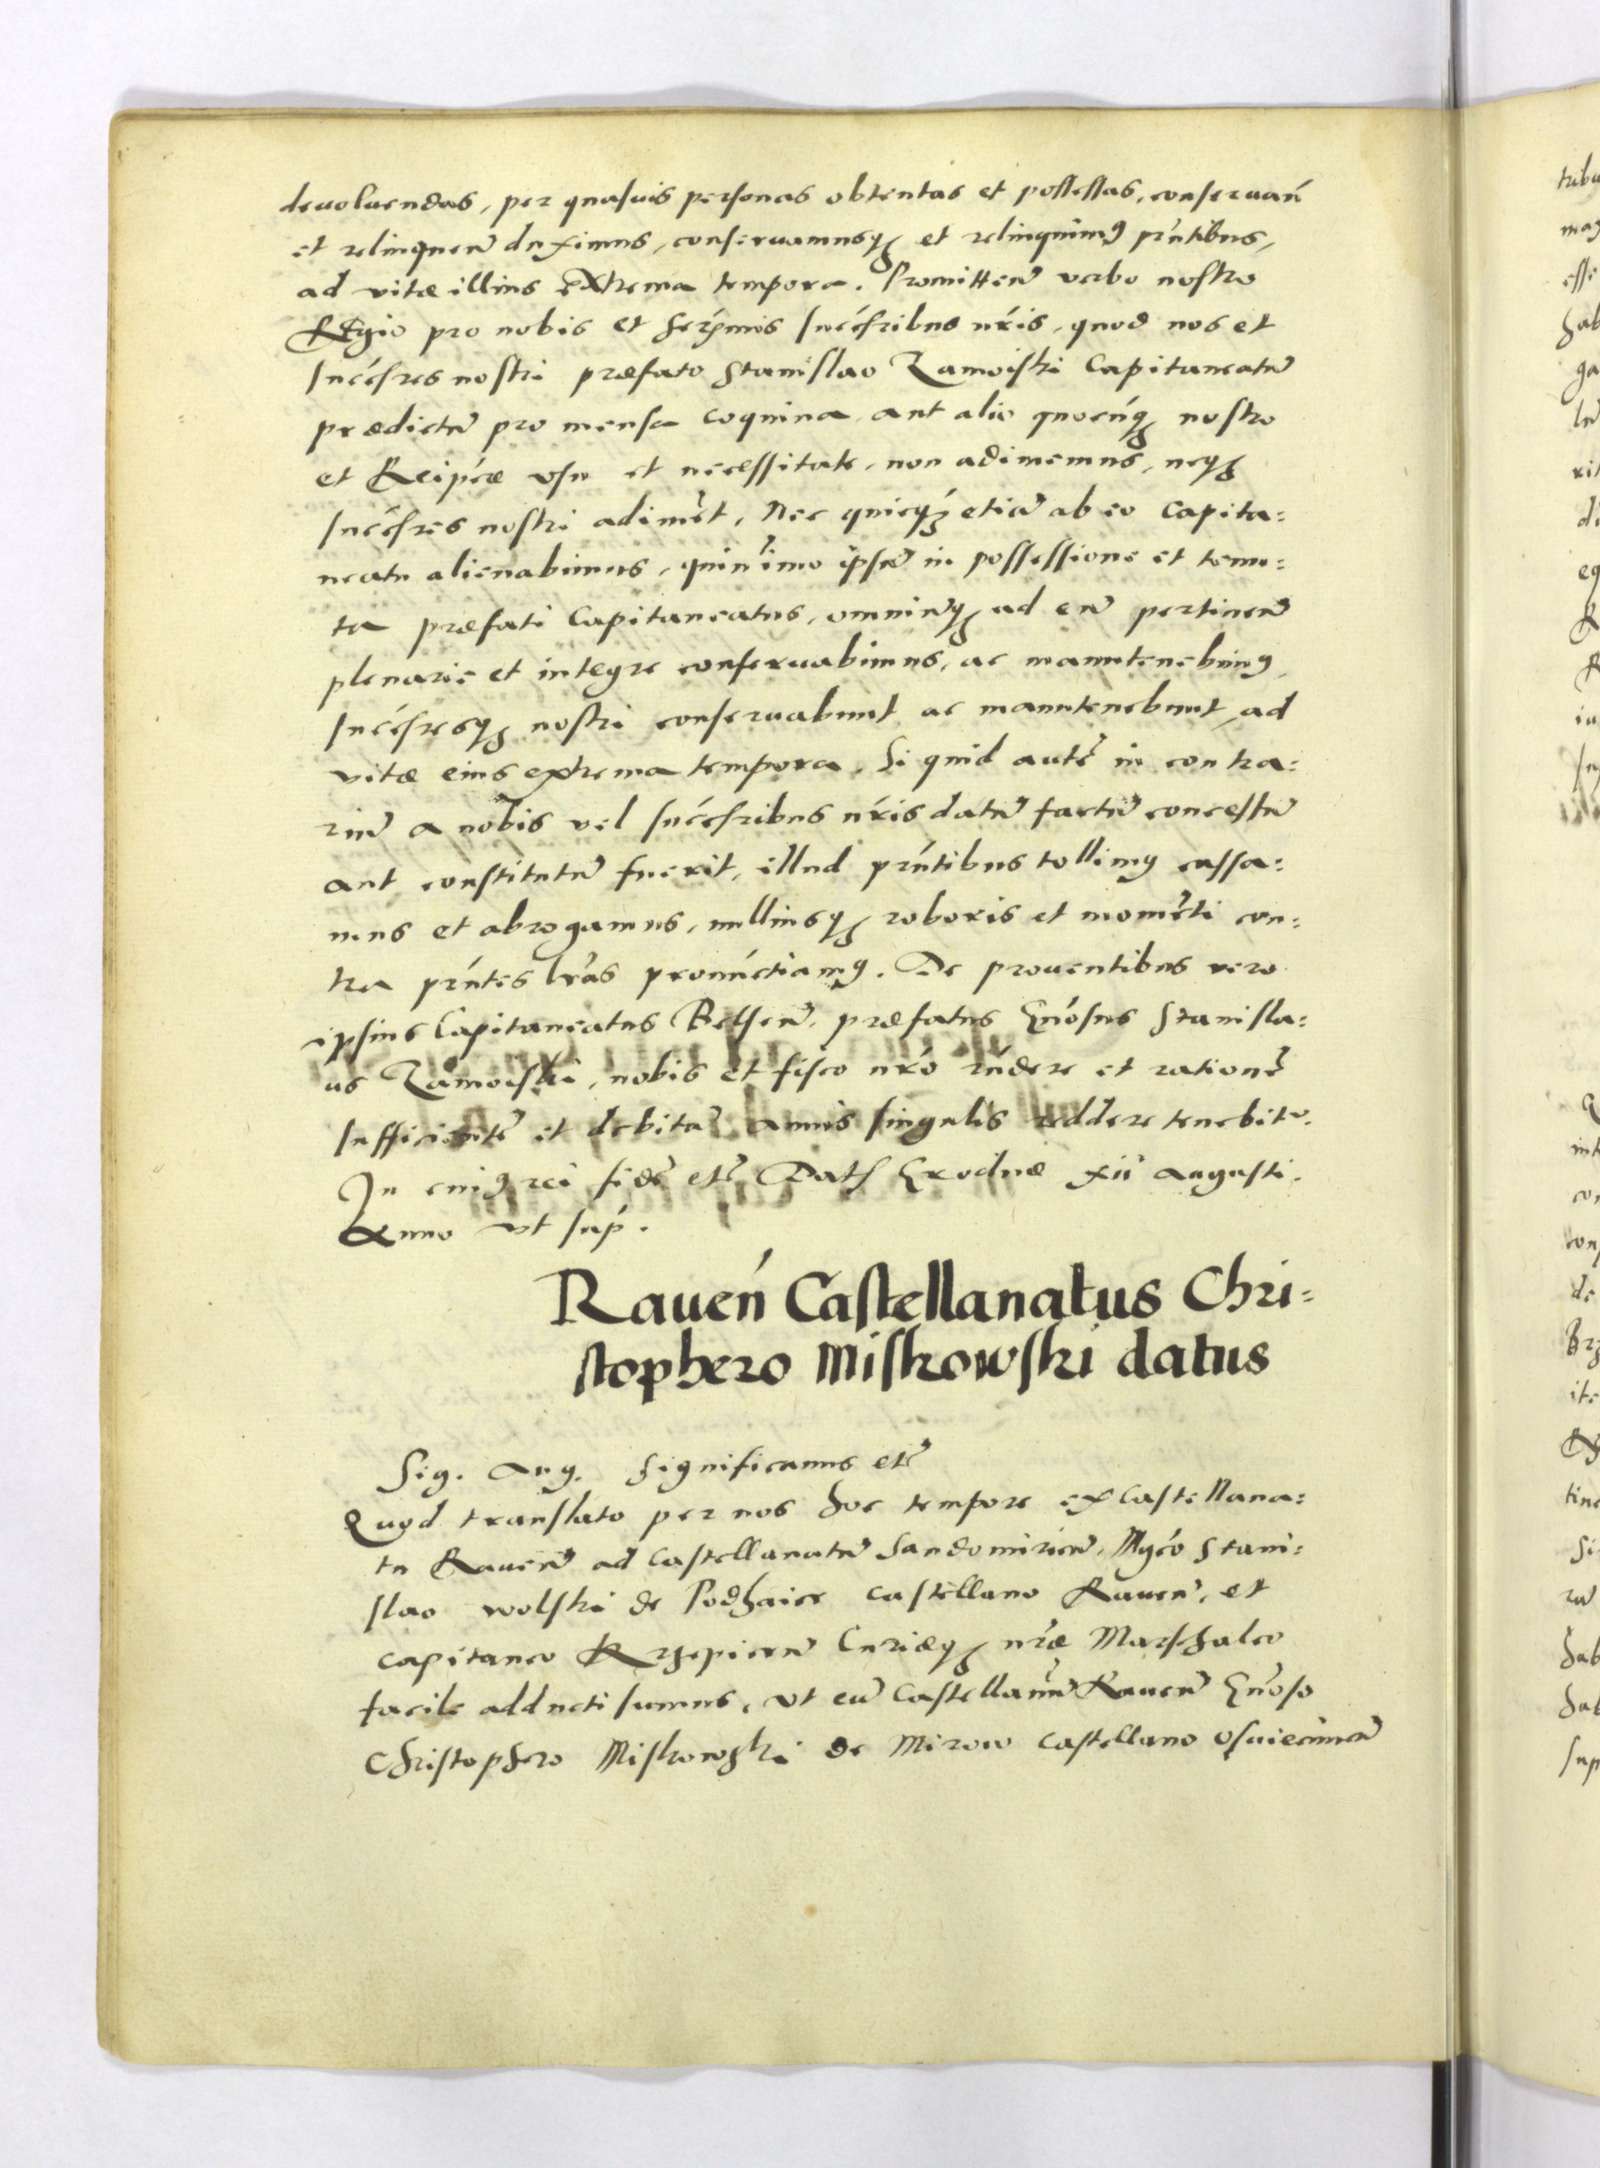 devoluendas, per quasuis personas obtentas et possessas, conseruan̄
et relinquen̄ duximus, conseruamusq₃ et relinquimꝰ pr̄ntibus,
ad vitæ illius extrema tempora. Promitten̄ verbo nostro
Regio pro nobis et Serꝫmis Succ̄sribus nr̄is, quod nos et
Succ̄sres nostri præfato Stanislao Zamoiski Capitaneatū
prædictū pro mensa coquina aut alio quocūq₃ nostro
et Reip̄cæ vsu et necessitate, non adimemus, neq₃
Succ̄sres nostri adimēt, Nec quicq₃ etiā ab eo Capita:
neatu alienabimus, quin imo ipsū in possessione et tenu:
ta præfati Capitaneatus, omniūq₃ ad eū pertinen̄
plenarie et integre conseruabimus, ac manutenebimꝰ,
Succ̄sresq₃ nostri conseruabunt ac manutenebunt, ad
vitæ eius extrema tempora. Si quid autē in contra:
riū a nobis vel Succ̄sribus nr̄is datū factū concessū
aut constitutū fuerit, illud pr̄ntibus tollimꝰ cassa:
mus et abrogamus, nulliusq₃ roboris et momēti con:
tra pr̄ntes lr̄as pronūctiamꝰ. De prouentibus vero
ipsius Capitaneatus Belsen̄. præfatus Gn̄osus Stanisla:
us Zamoiski, nobis et fisco nr̄o rn̄dere et rationē
sufficientē et debitā annis singulis reddere tenebitur.
In cuiꝰ rei fidē etc̄ Dat₃ Grodnæ xii Augusti.
Anno vt sup̄.
Rauen̄ Castellanatus Chri:
stophero Miskowski datus
Sig. Aug. Significamus etc̄
Quod translato per nos hoc tempore ex Castellana:
tu Rauen̄ ad Castellanatū Sandomirien̄, Mgc̄o Stani:
slao Wolski de Podhaice Castellano Rauen̄, et
Capitaneo Krzepicen̄ Curiæq₃ nr̄æ Marschalco
facile adducti sumus, vt eū Castellanū Rauen̄ Gn̄oso
Christophero Miskowski de Mirow Castellano Osuiecimen̄